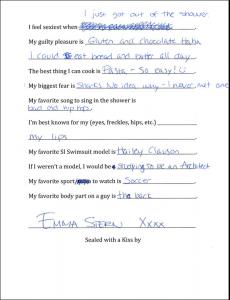 I just got out of the shower
I feel sexiest when
My guilty pleasure is Gluten and chocolate Haha
I could eat bread and butter all day
The best thing I can cook is Pasta - So easy! U
My biggest fear is Sharks No idea why - I never met one
My favorite song to sing in the shower is
bad old hip hits
I'm best known for my (eyes, freckles, hips, etc.)
my lips
My favorite SI Swimsuit model is Hailey Clauson
If I weren't a model, I would be studying to be an Architect
My favorite sport to watch is Soccer
My favorite body part on a guy is the back
EMMA STERN xxxx
Sealed with a Kiss by